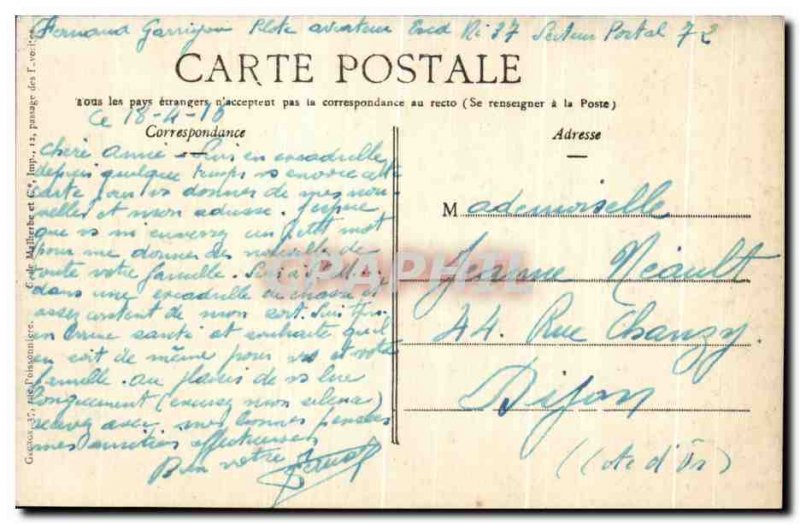 Fernand Garrigou Pilote aviateur Escd Ni 37 Secteur Postal 72
CARTE POSTALE
Tous les pays étrangers n'acceptent pas la correspondance au recto (Se renseigner à la Poste)
Ce 18-4-16
Correspondance
chère amie - Suis en escadrille
depuis quelque temps vs envoie cette
carte pour vs donner de mes nou-
velles et mon adresse. J'espère
que vs m'enverrez un petit mot
pour me donner des nouvelles de
toute votre famille. Suis
dans une escadrille de chasse et
assez content de mon sort. Suis tjrs
en bonne santé et souhaite qu'il
en soit de même pour vs et votre
famille. Au plaisir de vs lire
longuement (excusez mon silence)
recevez avec mes bonnes pensées
mes amitiés affectueuses
Bien votre
Adresse
Mademoiselle
Jeanne Néault
44. Rue Chanzy
Dijon
(Cote d'Or)
CPAPHIL